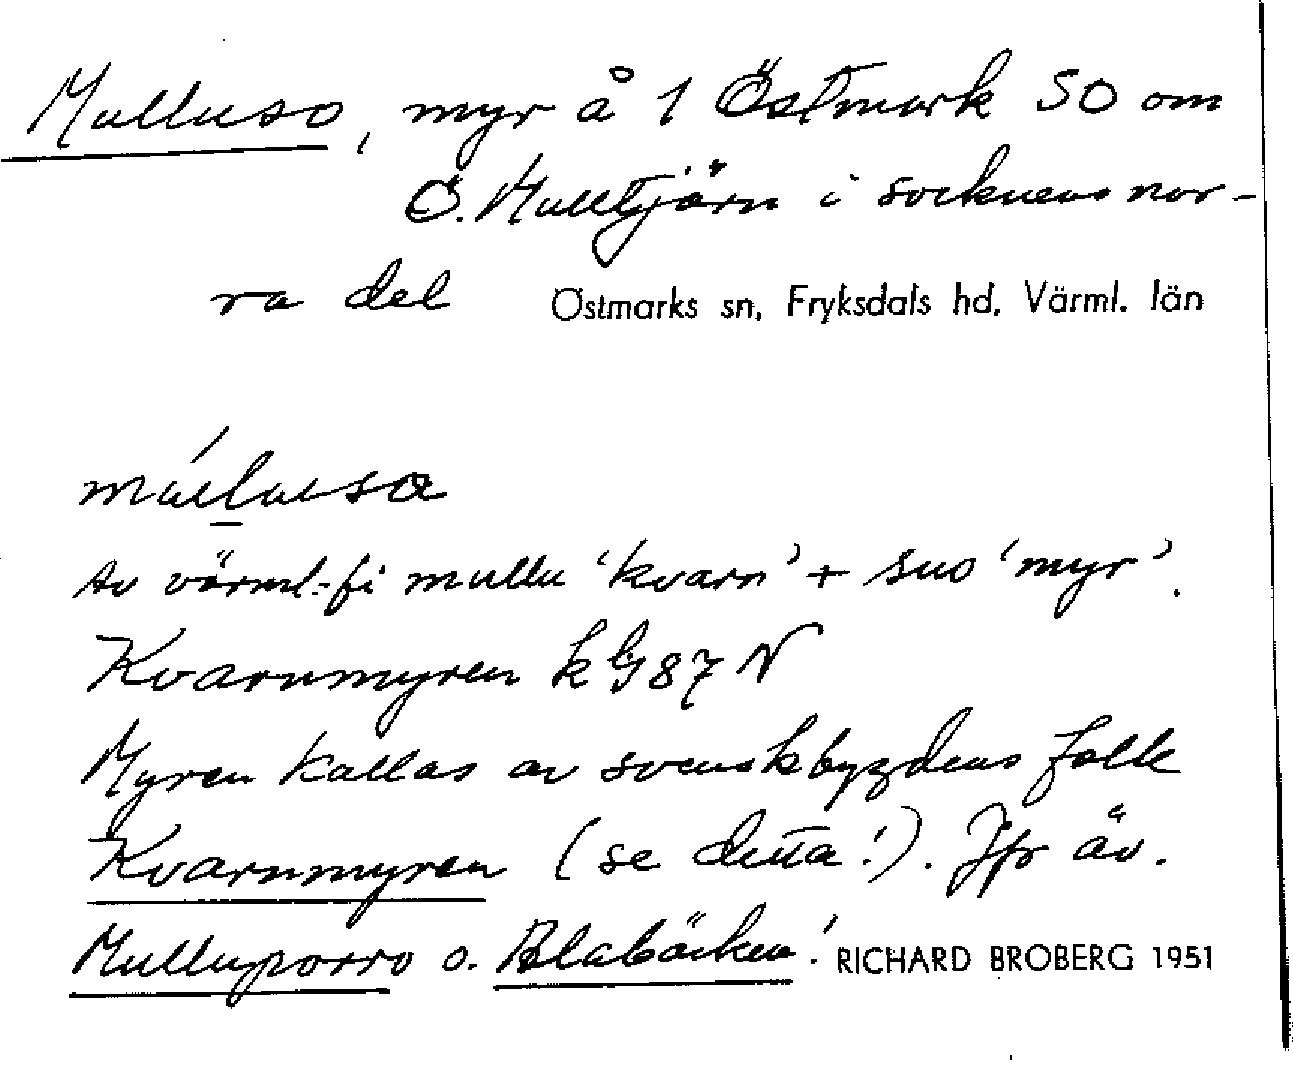 Mulluso, myr å 1 Östmark SO om
Ö. Mulltjärn i socknens nor-
ra del Östmarks sn, Fryksdals hd, Värml. län
múllusa
Av värml.-fi mullu 'kvarn' + suo 'myr'.
Kvarnmyren k G 87 N
Myren kallas av svenskbygdens folk
Kvarnmyren (se detta!). Jfr äv.
Mulluporro o. Blabäcken! RICHARD BROBERG 1951